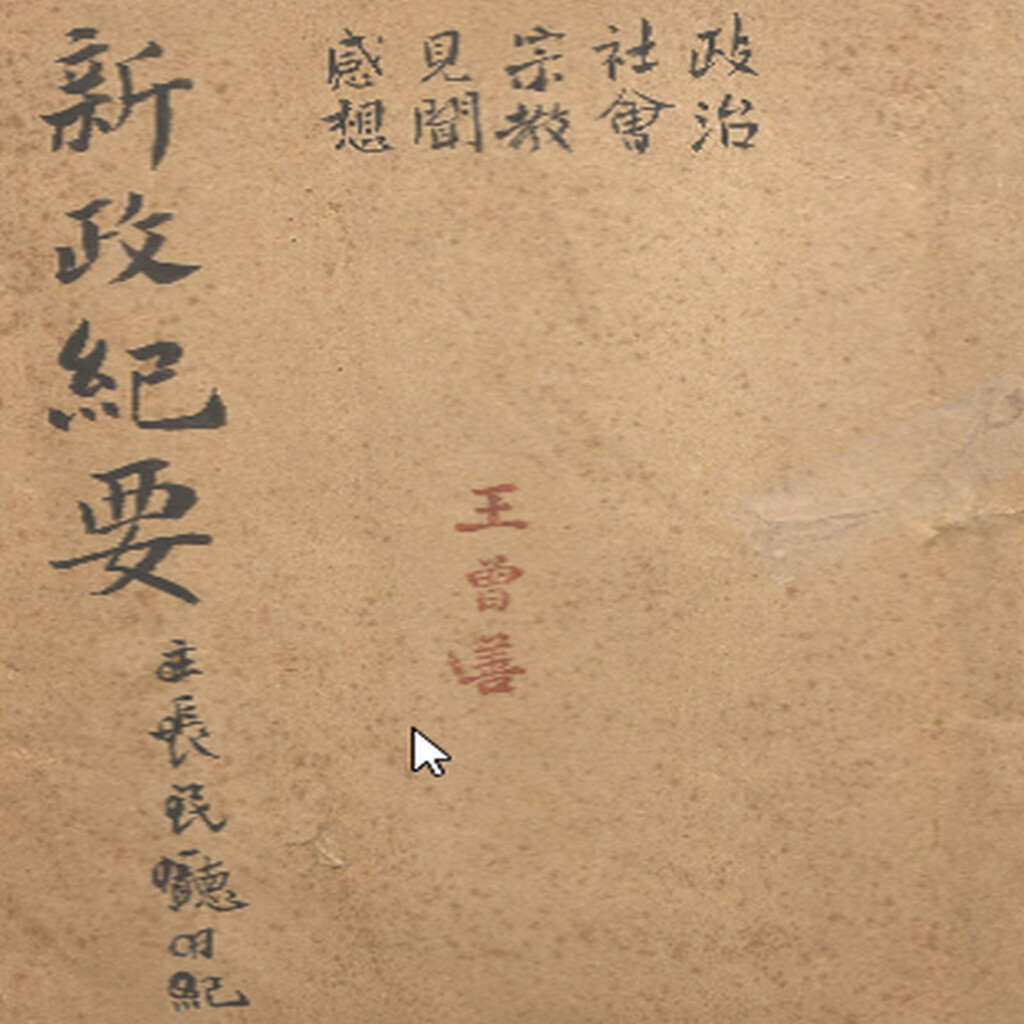 政治
社會
宗教
見聞
感想
王曾善
新政紀要
主長民廳日紀